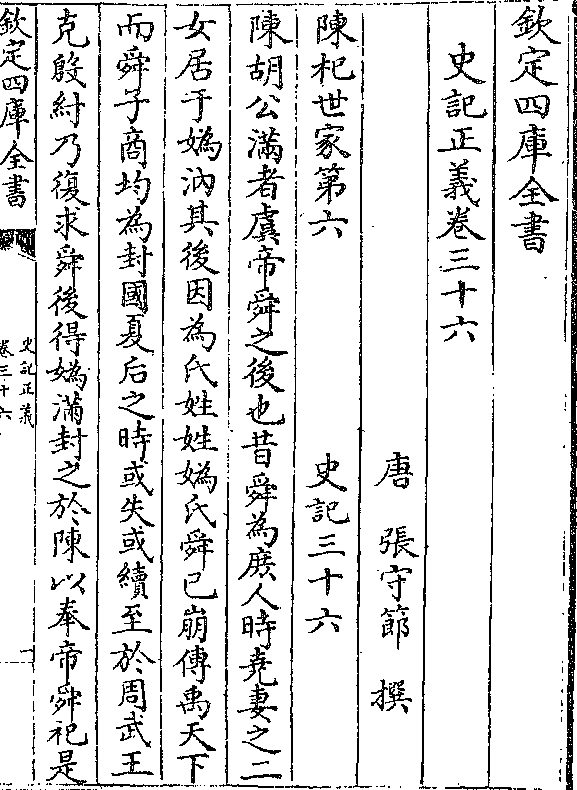 欽定四庫全書
史記正義卷三十六
唐 張守節 撰
陳杞世家第六 史記三十六
陳胡公滿者虞帝舜之後也昔舜為庶人時堯妻之二
女居于媯汭其後因為氏姓姓媯氏舜已崩傳禹天下
而舜子商均為封國夏后之時或失或續至於周武王
克殷紂乃復求舜後得媯滿封之於陳以奉帝舜祀是
欽定四庫全書
史記正義
卷三十六
一